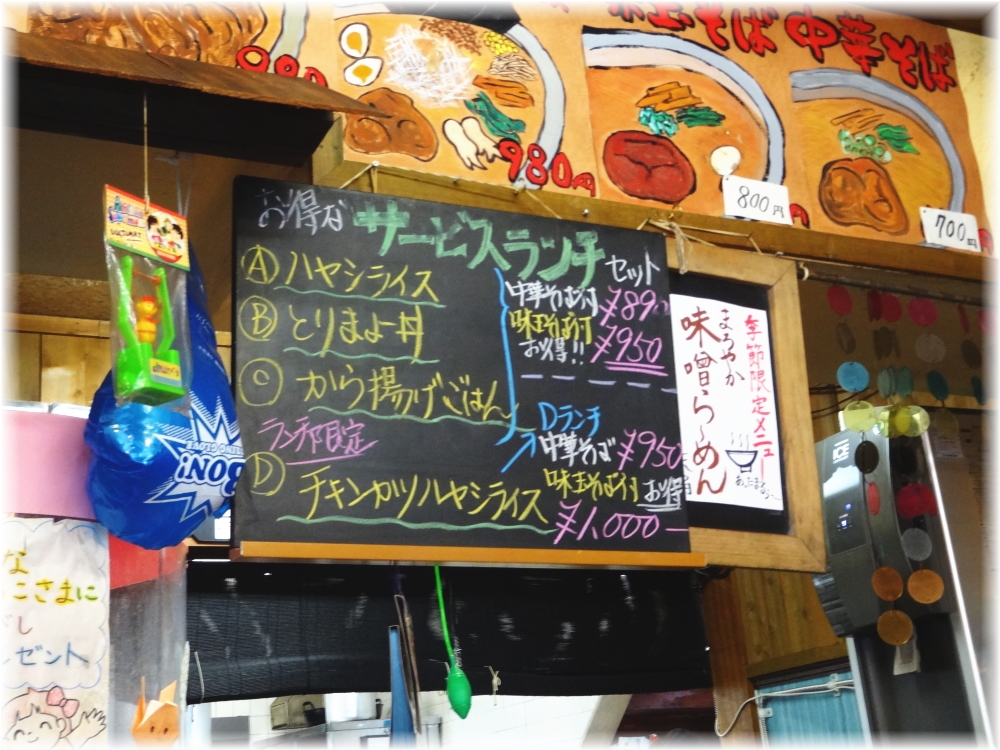 味玉そば 中華そば
980
980円
800円
700円
お得な サービスランチ
Ⓐ ハヤシライス
Ⓑ とりまよ丼
Ⓒ から揚げごはん
セット
中華そば付
¥890
味玉そば付
お得!!
¥950
ランチ限定
Ⓓ チキンカツハヤシライス
Dランチ
中華そば ¥950
味玉そば付 お得
¥1,000
季節限定メニュー
まろやか
味噌らーめん
ICE
BON!
な
こさまに
し
ゼント